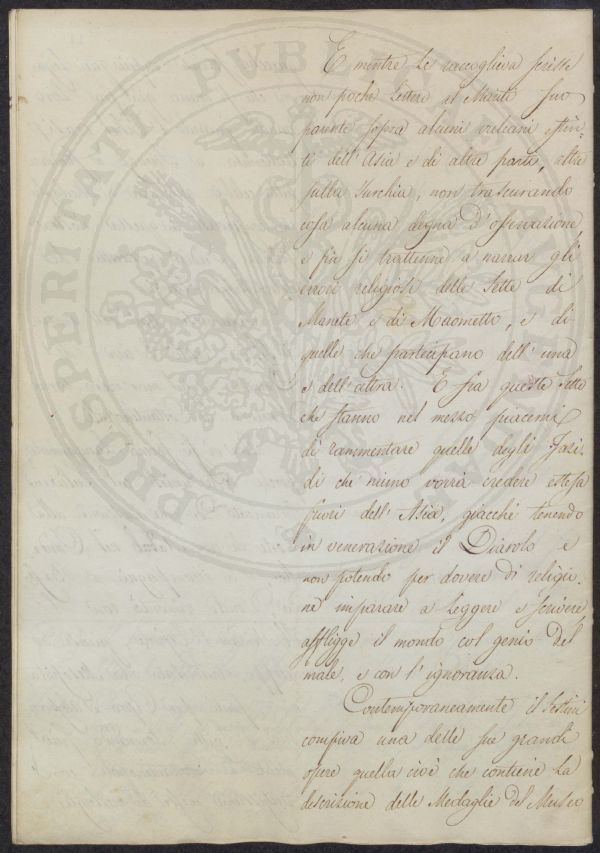 PROSPERITATI PUBLICAE AUGENDAE
E mentre le raccoglieva scrisse
non poche Lettere al Manti suo
parente sopra alcuni vulcani estin-
ti dell'Asia e di altre parti, oltre
sulla Turchia, non trascurando
cosa alcuna degna d'osservazione
e fin si trattenne a narrar gli
errori religiosi delle Sette di
Manete e di Maometto, e di
quelle che partecipano dell'una
e dell'altra. E fra queste Sette
che stanno nel mezzo piacemi
di rammentare quelle degli Jasi-
di che niuno vorrà credere estesa
fuori dell'Asia, giacchè tenendo
in venerazione il Diavolo e
non potendo per dovere di religio-
ne imparare a Leggere e scrivere
affligge il mondo col genio del
male, e con l'ignoranza.
Contemporaneamente il Sestini
compiva una delle sue grandi
opere quella cioè che contiene La
descrizione delle Medaglie del Museo